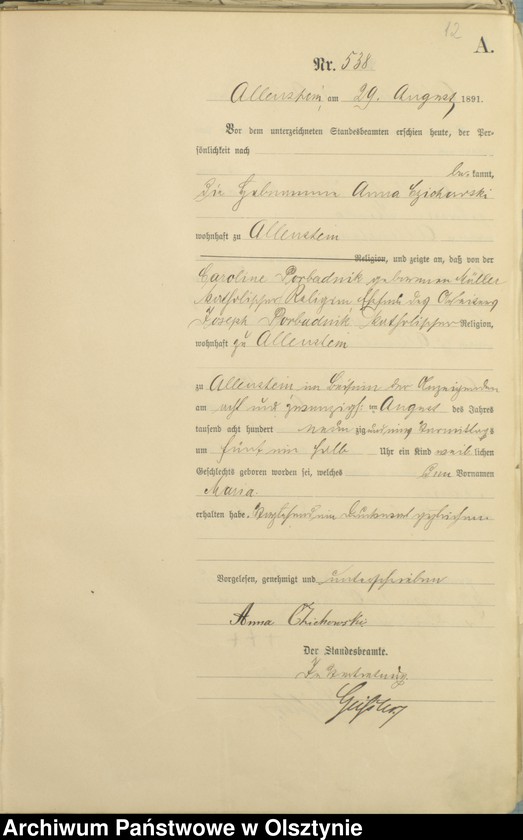 12
A.
Nr. 538
Allenstein, am 29. August 1891.
Vor dem unterzeichneten Standesbeamten erschien heute, der Per-
sönlichkeit nach
bekannt,
die Hebamme Anna Czichowski
wohnhaft zu Allenstein
Religion, und zeigte an, daß von der
Caroline Porbadnik geborenen Müller
katholischer Religion Ehefrau des Arbeiters
Joseph Porbadnik, katholischer Religion,
wohnhaft zu Allenstein
zu Allenstein in Beisein der Anzeigenden
am acht und zwanzigsten August des Jahres
tausend acht hundert neunzig und eins Vormittags
um fünf ein halb Uhr ein Kind weiblichen
Geschlechts geboren worden sei, welches den Vornamen
Maria
erhalten habe. Vorstehend ein Druckwort gestrichen
Vorgelesen, genehmigt und unterschrieben
Anna Czichowski
Der Standesbeamte.
In Vertretung
Archiwum Państwowe w Olsztynie